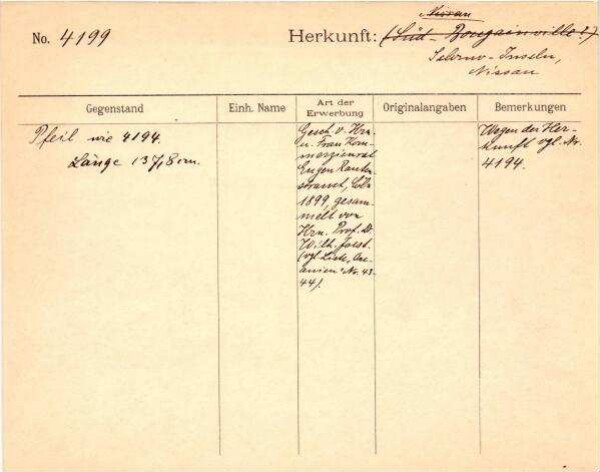 Nissan
No. 4199 Herkunft: (Süd-Bougainville?)
Salomo-Inseln,
Nissan
Gegenstand
Einh. Name
Art der
Erwerbung
Originalangaben
Bemerkungen
Pfeil wie 4194.
Länge 137,8 cm.
Gesch. v. Hrn.
u. Frau Kom-
merzienrat
Eugen Rauten-
strauch, Cöln
1899, gesam-
melt von
Hrn. Prof. Dr.
Wilh. Joest.
(vgl. Liste, Oce-
anien Nr. 43
44).
Wegen der Her-
kunft vgl. Nr.
4194.